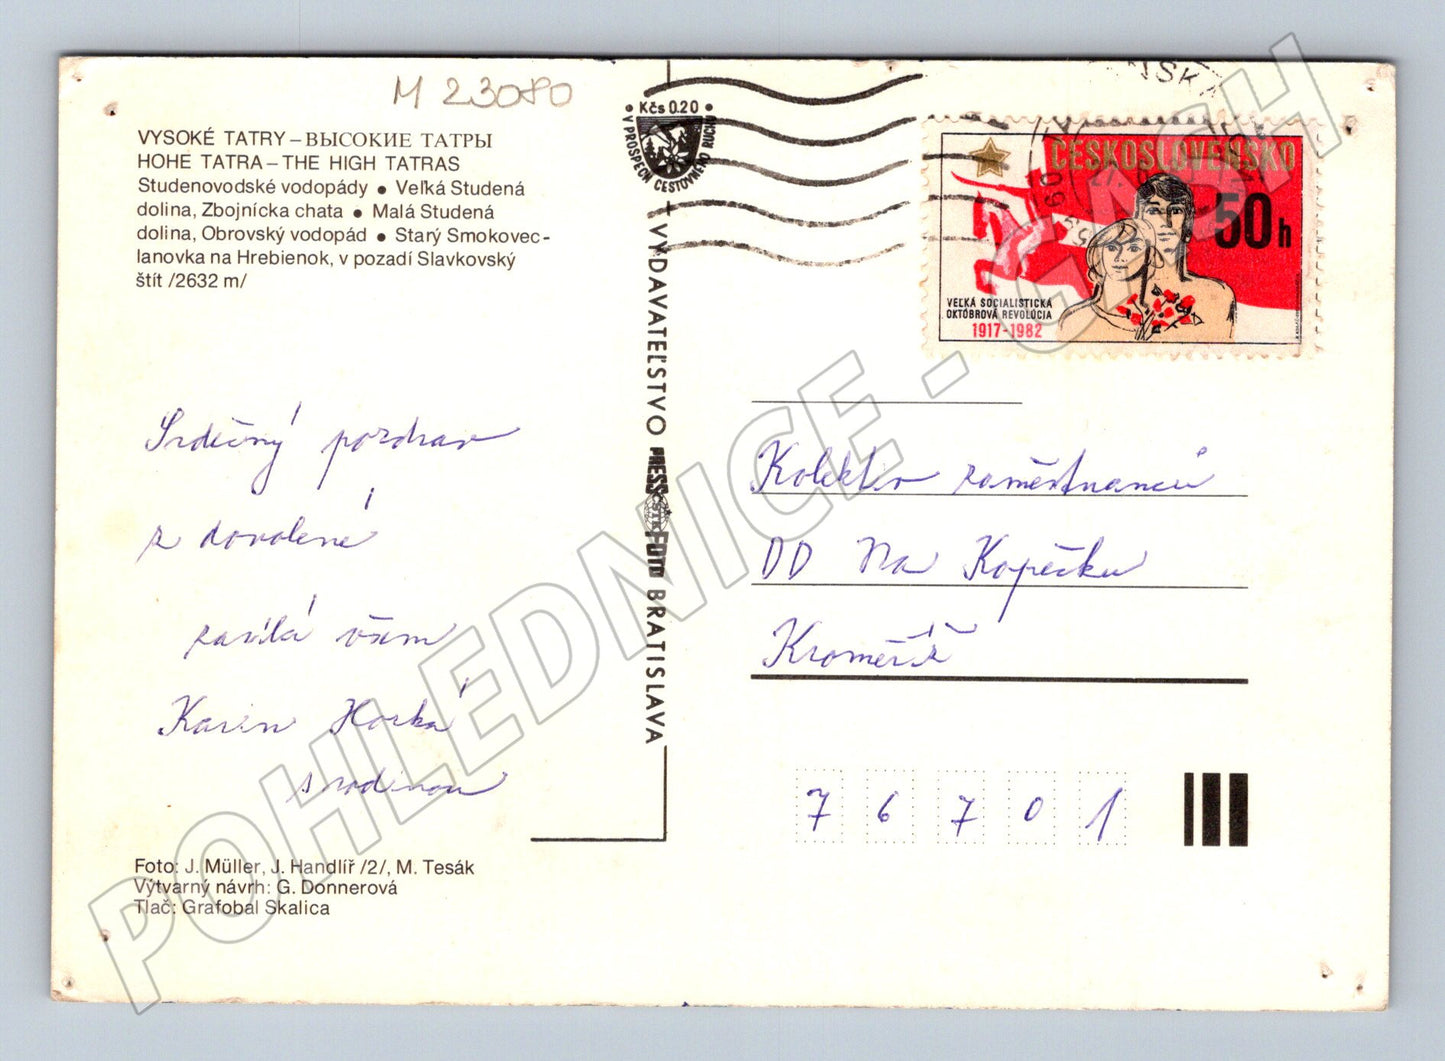 M 23080
VYSOKÉ TATRY – ВЫСОКИЕ ТАТРЫ
HOHE TATRA – THE HIGH TATRAS
Studenovodské vodopády ● Veľká Studená
dolina, Zbojnícka chata ● Malá Studená
dolina, Obrovský vodopád ● Starý Smokovec -
lanovka na Hrebienok, v pozadí Slavkovský
štít /2632 m/
Srdečný pozdrav
z dovolené
zasílá všem
Karin Horká
s rodinou
Foto: J. Müller, J. Handlíř /2/, M. Tesák
Výtvarný návrh: G. Donnerová
Tlač: Grafobal Skalica
• Kčs 0.20 •
V PROSPECH CESTOVNÉHO RUCHU
VYDAVATEĽSTVO PRESSFOTO BRATISLAVA
ČSTK
ČESKOSLOVENSKO
50 h
VEĽKÁ SOCIALISTICKÁ
OKTÓBROVÁ REVOLÚCIA
1917-1982
Kolektiv zaměstnanců
DD Na Kopečku
Kroměříž
76701
POHLEDNICE - CASH